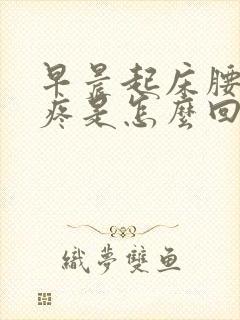 早晨起床腰
疼是怎麼回
織夢雙魚